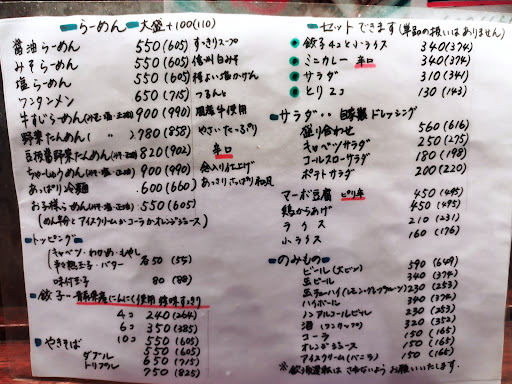 らーめん 大盛+100(110)
醤油らーめん 550(605) すっきりスープ
みそらーめん 550(605) 信州白みそ
塩らーめん 550(605)
ワンタンメン 650(715) つるんと
牛すじらーめん 900(990) 国産牛使用
野菜たんめん 780(858) やさいたっぷり
820(902) 辛口
ちゃーしゅうめん 900(990) 仕上げ
あっぱり冷麺 600(660) あっさりさっぱり和風
お子様らーめん 550(605)
(めん半分とアイスクリームかコーラかオレンジジュース)
トッピング
キャベツ・わかめ・もやし
半熟玉子・バター 各50(55)
味付玉子 80(88)
餃子 青森県産にんにく使用
4コ 240(264)
6コ 350(385)
10コ 550(605)
やきそば 550(605)
ダブル 650(715)
トリプル 750(825)
セットできます(単品の扱いはありません)
餃子4コと小ライス 340(374)
ミニカレー 辛口 340(374)
サラダ 310(341)
とり2コ 130(143)
サラダ・・自家製ドレッシング
盛り合わせ 560(616)
キャベツサラダ 250(275)
コールスローサラダ 180(198)
ポテトサラダ 200(220)
マーボ豆腐 ピリ辛 450(495)
鶏からあげ 450(495)
ライス 210(231)
小ライス 160(176)
のみもの
ビール(大ビン) 590(649)
生ビール 340(374)
缶チューハイ(レモン・グレープフルーツ) 230(253)
ハイボール 340(374)
ノンアルコールビール 230(253)
酒(ワンカップ) 320(352)
コーラ 150(165)
オレンジジュース 150(165)
アイスクリーム(バニラ) 150(165)
※飲酒運転は お願いいたします。